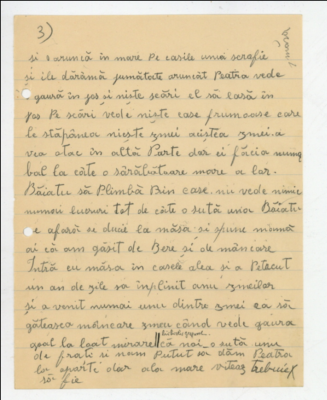 3)
și s aruncă în mare Pe casile unui scrafie
și ile dărâmă jumătate aruncât Peatra vede
gaură în jos și niște scări el să lasă în
jos Pe scări vede niște case frumoase care
le stăpânea niește zmei aiștea zmei a
vea atac în altă Parte dar ei făcia numa
bal la câte o sărăbătuare mare a lor.
Băiatu să Plimbă Bin case. nu vede nimic
numai lucruri tot de câte o sută unu Băiatu
e afară se duce la măsă și spune mumă
ai că am găsit de Bere și de mâncare
Intră cu măsa în casele alea și a Petrecut
un an de zile sa implinit anu zmeilor
și a venit numai unu dintre zmei ca să
gătească mâincare zmeu când vede gaura
goal la luat mirare că noi o sută unu
de frati și nam Putut să dăm Peatra
la oparte dar ala mare viteaz trebuie
să fie